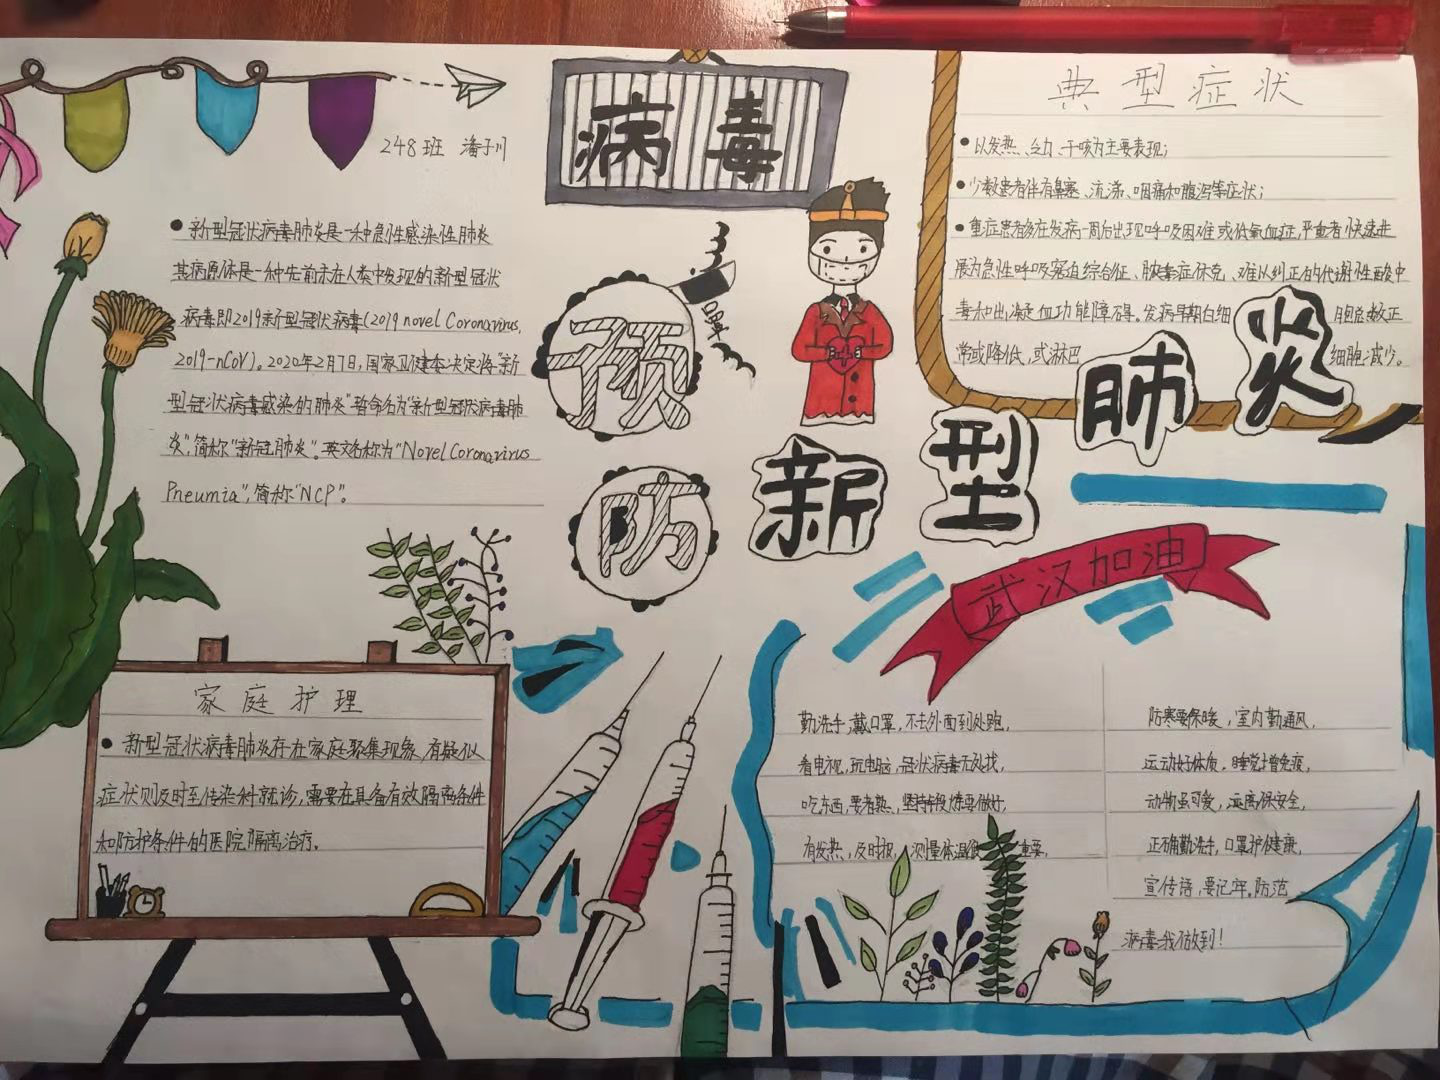 248班 潘子川
病毒
预
防
新型肺炎
新型冠状病毒肺炎是一种急性感染性肺炎
其病原体是一种先前未在人类中发现的新型冠状
病毒即2019新型冠状病毒(2019 novel Coronavirus,
2019-nCoV)。2020年2月7日,国家卫健委决定将"新
型冠状病毒感染的肺炎"暂命名为"新型冠状病毒肺
炎",简称"新冠肺炎"。英文名称为"Novel Coronavirus
Pneumia",简称"NCP"。
典型症状
以发热、乏力、干咳为主要表现;
少数患者伴有鼻塞、流涕、咽痛和腹泻等症状;
重症患者多在发病一周后出现呼吸困难或低氧血症,严重者快速进
展为急性呼吸窘迫综合征、脓毒症休克、难以纠正的代谢性酸中
毒和出凝血功能障碍。发病早期白细胞总数正
常或降低,或淋巴细胞减少。
家庭护理
新型冠状病毒肺炎存在家庭聚集现象,有疑似
症状则及时至传染科就诊,需要在具备有效隔离条件
和防护条件的医院隔离治疗。
武汉加油
勤洗手,戴口罩,不去外面到处跑,
看电视,玩电脑,冠状病毒无处找,
吃东西,要煮熟,坚持锻炼要做好,
有发热,及时报,测量体温 重要,
防寒要保暖,室内勤通风,
运动好体质,睡觉增免疫,
动物虽可爱,远离保安全,
正确勤洗手,口罩护健康,
宣传语,要记牢。防范
病毒我做到!